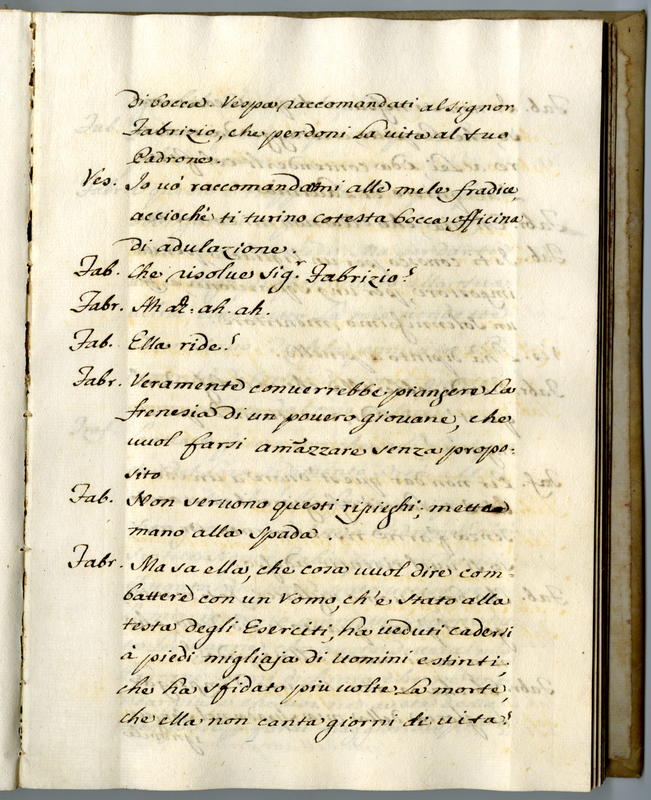 di bocca. Vespa raccomandati al Signor
Fabrizio, che perdoni la vita al tuo
Padrone.
Ves. Io vò raccomandarmi alle mele fradice,
acciochè ti turino cotesta bocca officina
di adulazione.
Fab. Che risolue Sig.r Fabrizio?
Fabr. Ah ah: ah. ah.
Fab. Ella ride?
Fabr. Veramente conuerrebbe piangere la
frenesia di un pouero giouane, che
vuol farsi am̃azzare senza propo-
sito
Fab. Non seruono questi ripieghi; metta
mano alla spada.
Fabr. Ma sa ella, che cosa vuol dire com-
battere con un Vomo, ch'e stato alla
testa degli Eserciti, ha ueduti cadersi
à piedi migliaja di uomini estinti,
che ha sfidato piu uolte la morte,
che ella non canta giorni di uita?